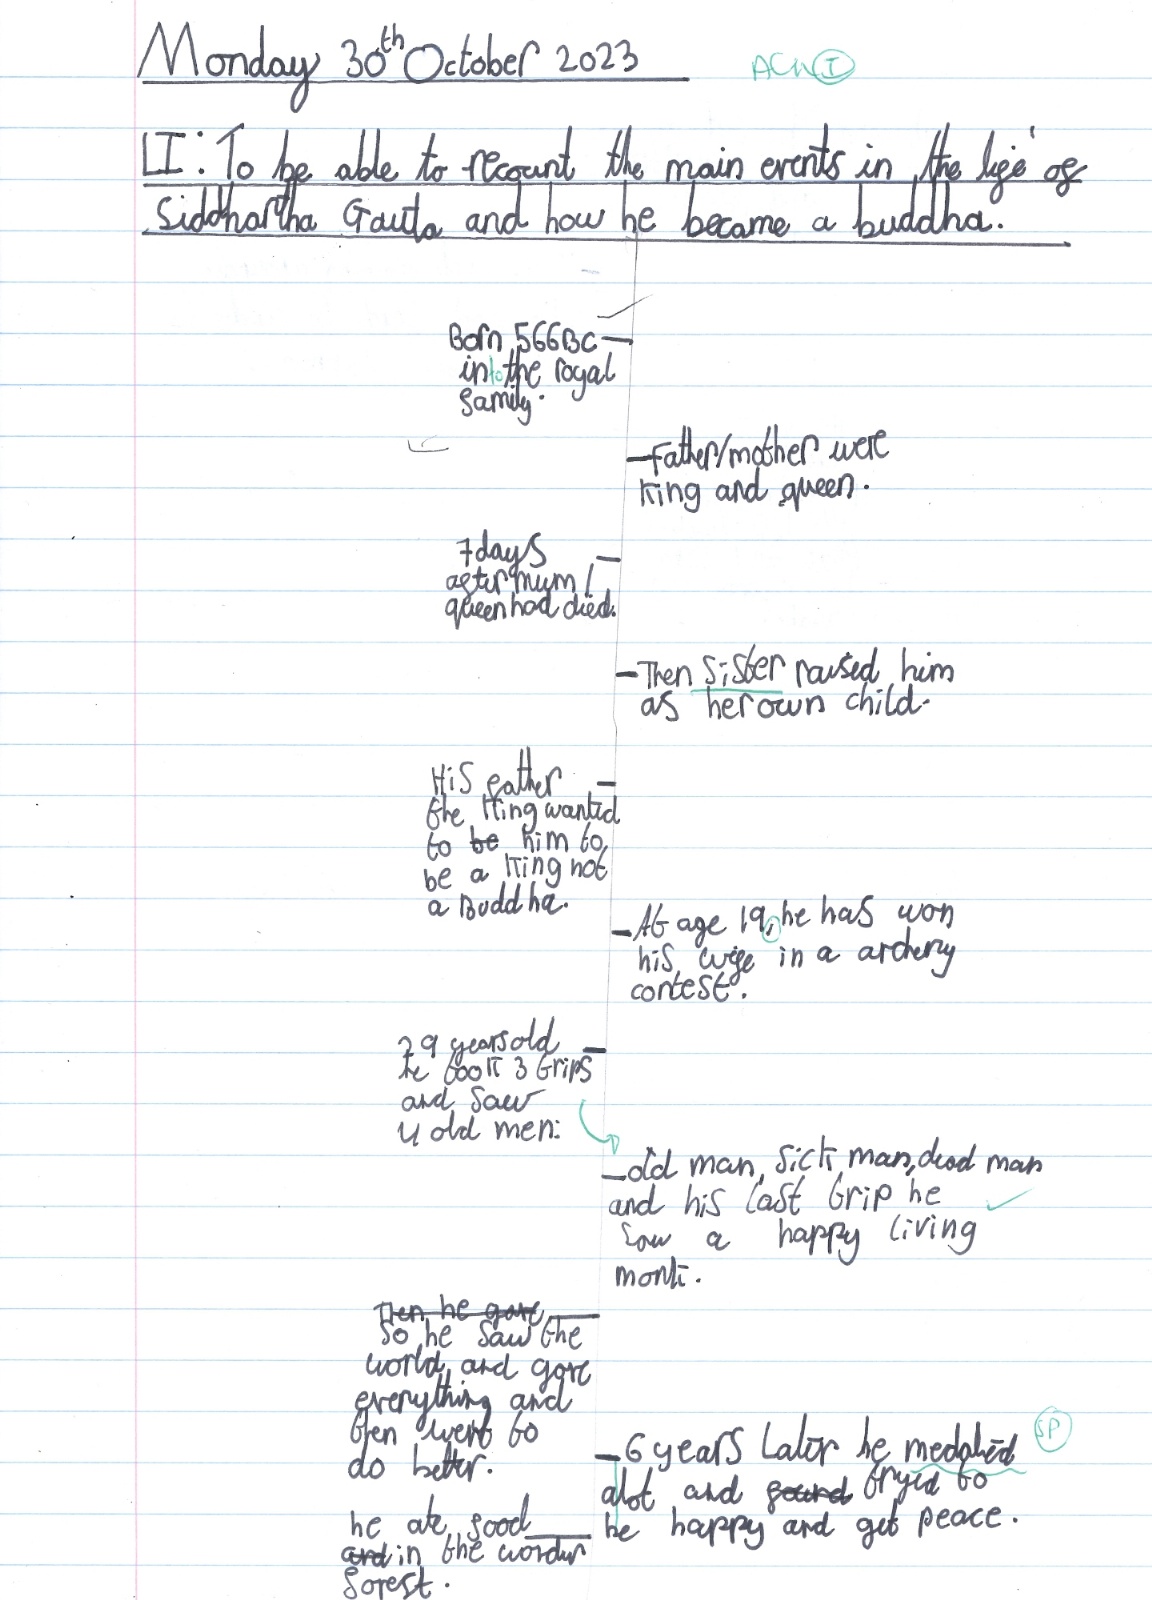 Monday 30th October 2023
ACW I
LI: To be able to recount the main events in the life of
Siddhartha Gauta and how he became a buddha.
Born 566BC
into the royal
family.
Father/mother were
King and queen.
7 days
after mum/
queen had died.
Then sister raised him
as her own child.
His father
the King wanted
to be him to
be a King not
a Buddha.
At age 19, he has won
his wife in a archery
contest.
29 years old
he took 3 trips
and saw
4 old men:
old man, sick man, dead man
and his last trip he
saw a happy living
monk.
Then he gave
So he saw the
world and gave
everything and
then went to
do better.
6 years later he medahied
SP
alot and found tryed to
be happy and get peace.
he ate food
and in the
forest.